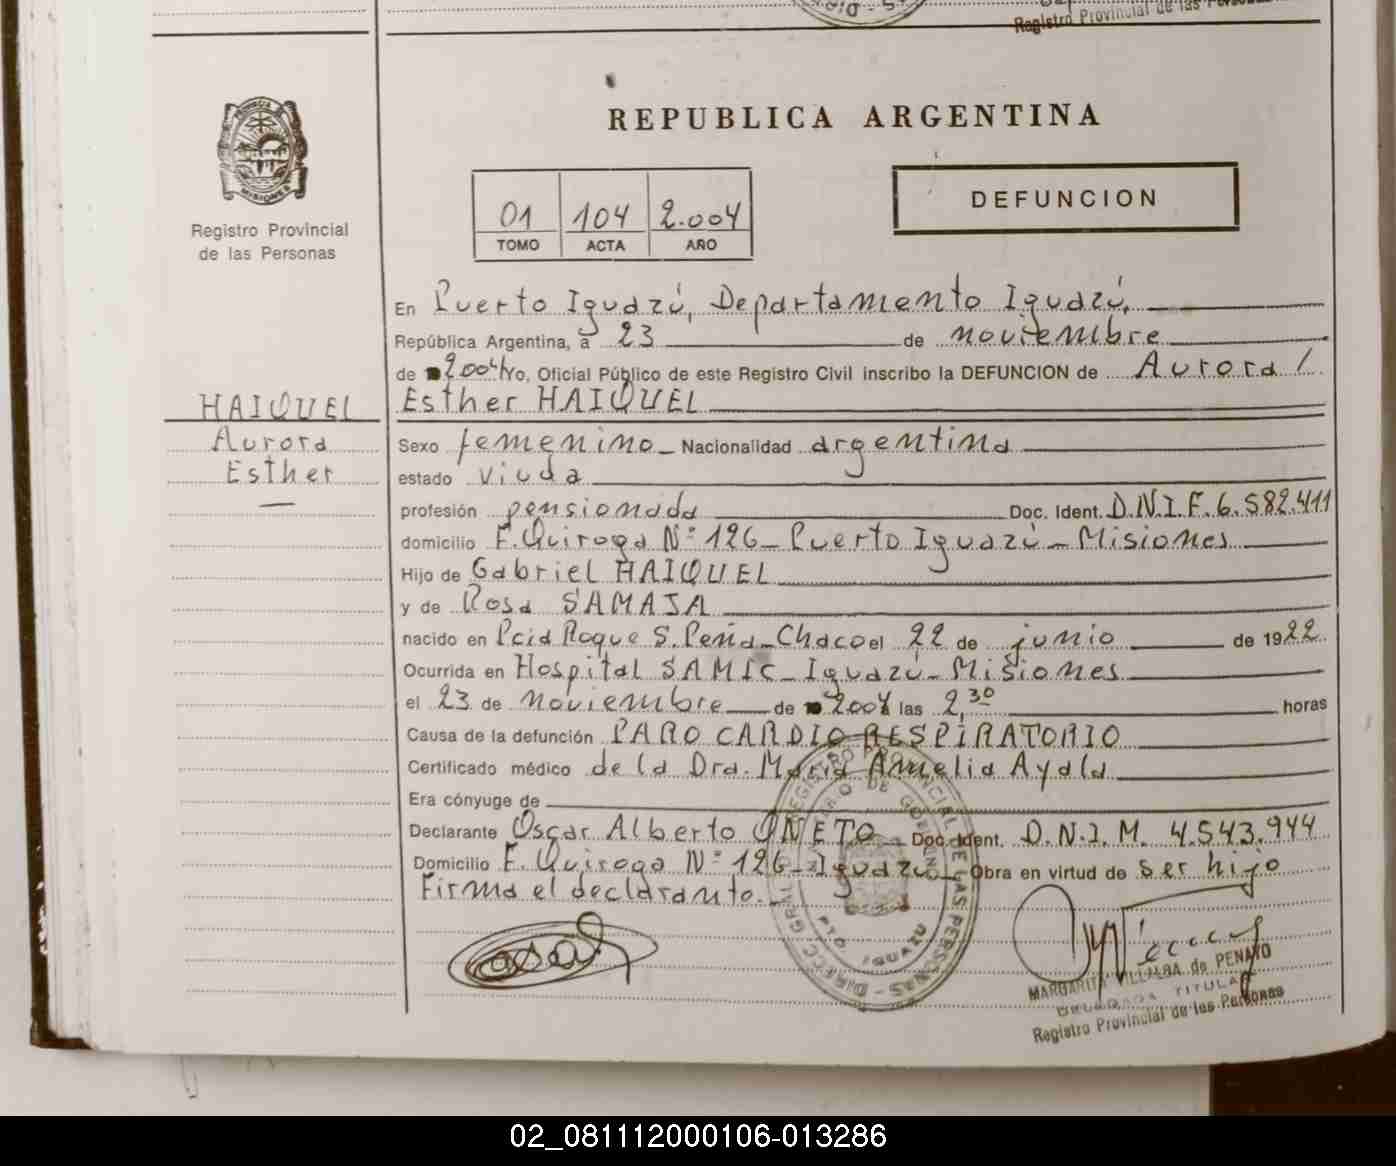 Registro Provincial de las Personas
REPUBLICA ARGENTINA
DEFUNCION
01 104 2.004
TOMO ACTA AÑO
PROVINCIA DE
MISIONES
Registro Provincial
de las Personas
HAIQUEL
Aurora
Esther
En Puerto Iguazú, Departamento Iguazú,
República Argentina, a 23 de noviembre
de 2004 yo, Oficial Público de este Registro Civil inscribo la DEFUNCION de Aurora /
Esther HAIQUEL
Sexo femenino Nacionalidad argentina
estado viuda
profesión pensionada Doc. Ident. D.N.I.F. 6.582.411
domicilio F. Quiroga Nº 126 - Puerto Iguazú - Misiones
Hijo de Gabriel HAIQUEL
y de Rosa SAMAJA
nacido en Pcia Roque S. Peña - Chaco el 22 de junio de 1922
Ocurrida en Hospital SAMIC - Iguazú - Misiones
el 23 de noviembre de 2004 las 2,30 horas
Causa de la defunción PARO CARDIO RESPIRATORIO
Certificado médico de la Dra. María Amelia Ayala
Era cónyuge de
Declarante Oscar Alberto ONETO Doc. Ident. D.N.I.M. 4.543.944
Domicilio F. Quiroga Nº 126 - Iguazú - Obra en virtud de ser hijo
Firma el declarante.
PTO. IGUAZU
MARGARITA VILLALBA de PENAYO
DELEGADA TITULAR
Registro Provincial de las Personas
02_081112000106-013286